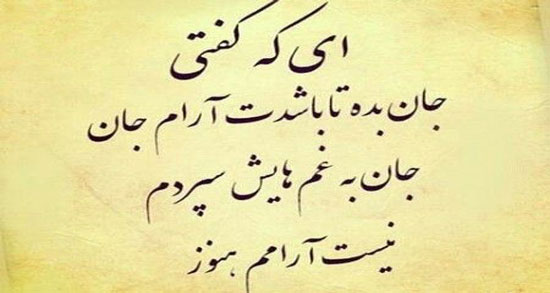 ای که گفتی
جان بده تا باشدت آرام جان
جان به غم هایش سپردم
نیست آرامم هنوز